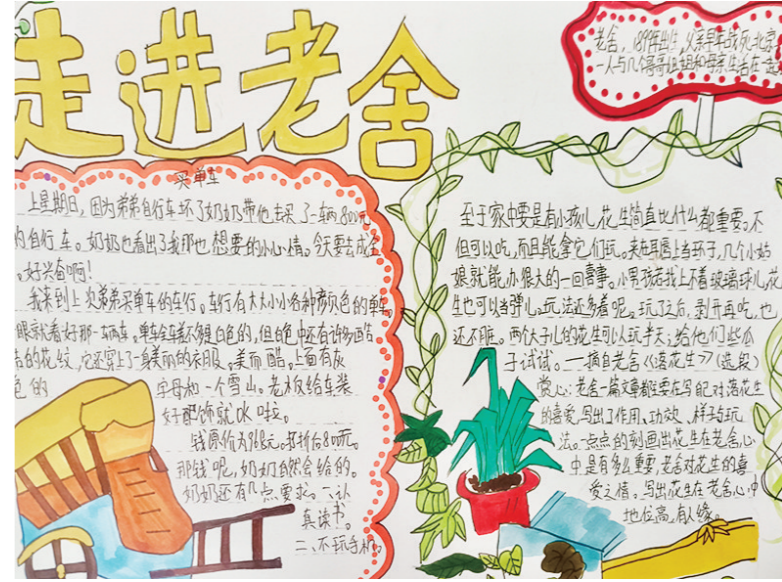 走进老舍
老舍,1899年出生,父亲早年战死北京
一人与几个哥哥姐姐和母亲生活在一起
买单车
上星期日,因为弟弟自行车坏了奶奶带他去买了一辆800元
的自行车。奶奶也看出了我那也想要的小心情。今天要去成全
。好兴奋啊!
我来到上次弟弟买单车的车行。车行有大大小小各种颜色的单车。
眼就看好那一辆车。单车全是不够是白色的,但白色中还有许多酷
的花纹,它还穿上了一身美丽的衣服。美而酷。上面有灰
色的 字母和一个雪山。老板给车装
好配饰就OK啦。
钱原价为968元。打折后800元。
那钱呢,奶奶自然会给的。
奶奶还有几点要求。一、认
真读书。
二、不玩手机。
至于家中要是有小孩儿,花生简直比什么都重要。不
但可以吃,而且能拿它们玩。夹在耳唇上当环子,几个小姑
娘就能办很大的一回喜事。小男孩若找上不着玻璃球儿,花
生也可以当弹儿。玩法还多着呢。玩了之后,剥开再吃,也
还不脏。两个大子儿的花生可以玩半天;给他们些瓜
子试试。——摘自老舍《落花生》(选段)
赏心:老舍一篇文章都主要在写自己对落花生
的喜爱,写出了作用、功效、样子与玩
法。一点点的刻画出花生在老舍心
中是有多么重要,老舍对花生的喜
爱之情。写出花生在老舍心中
地位高,有人缘。